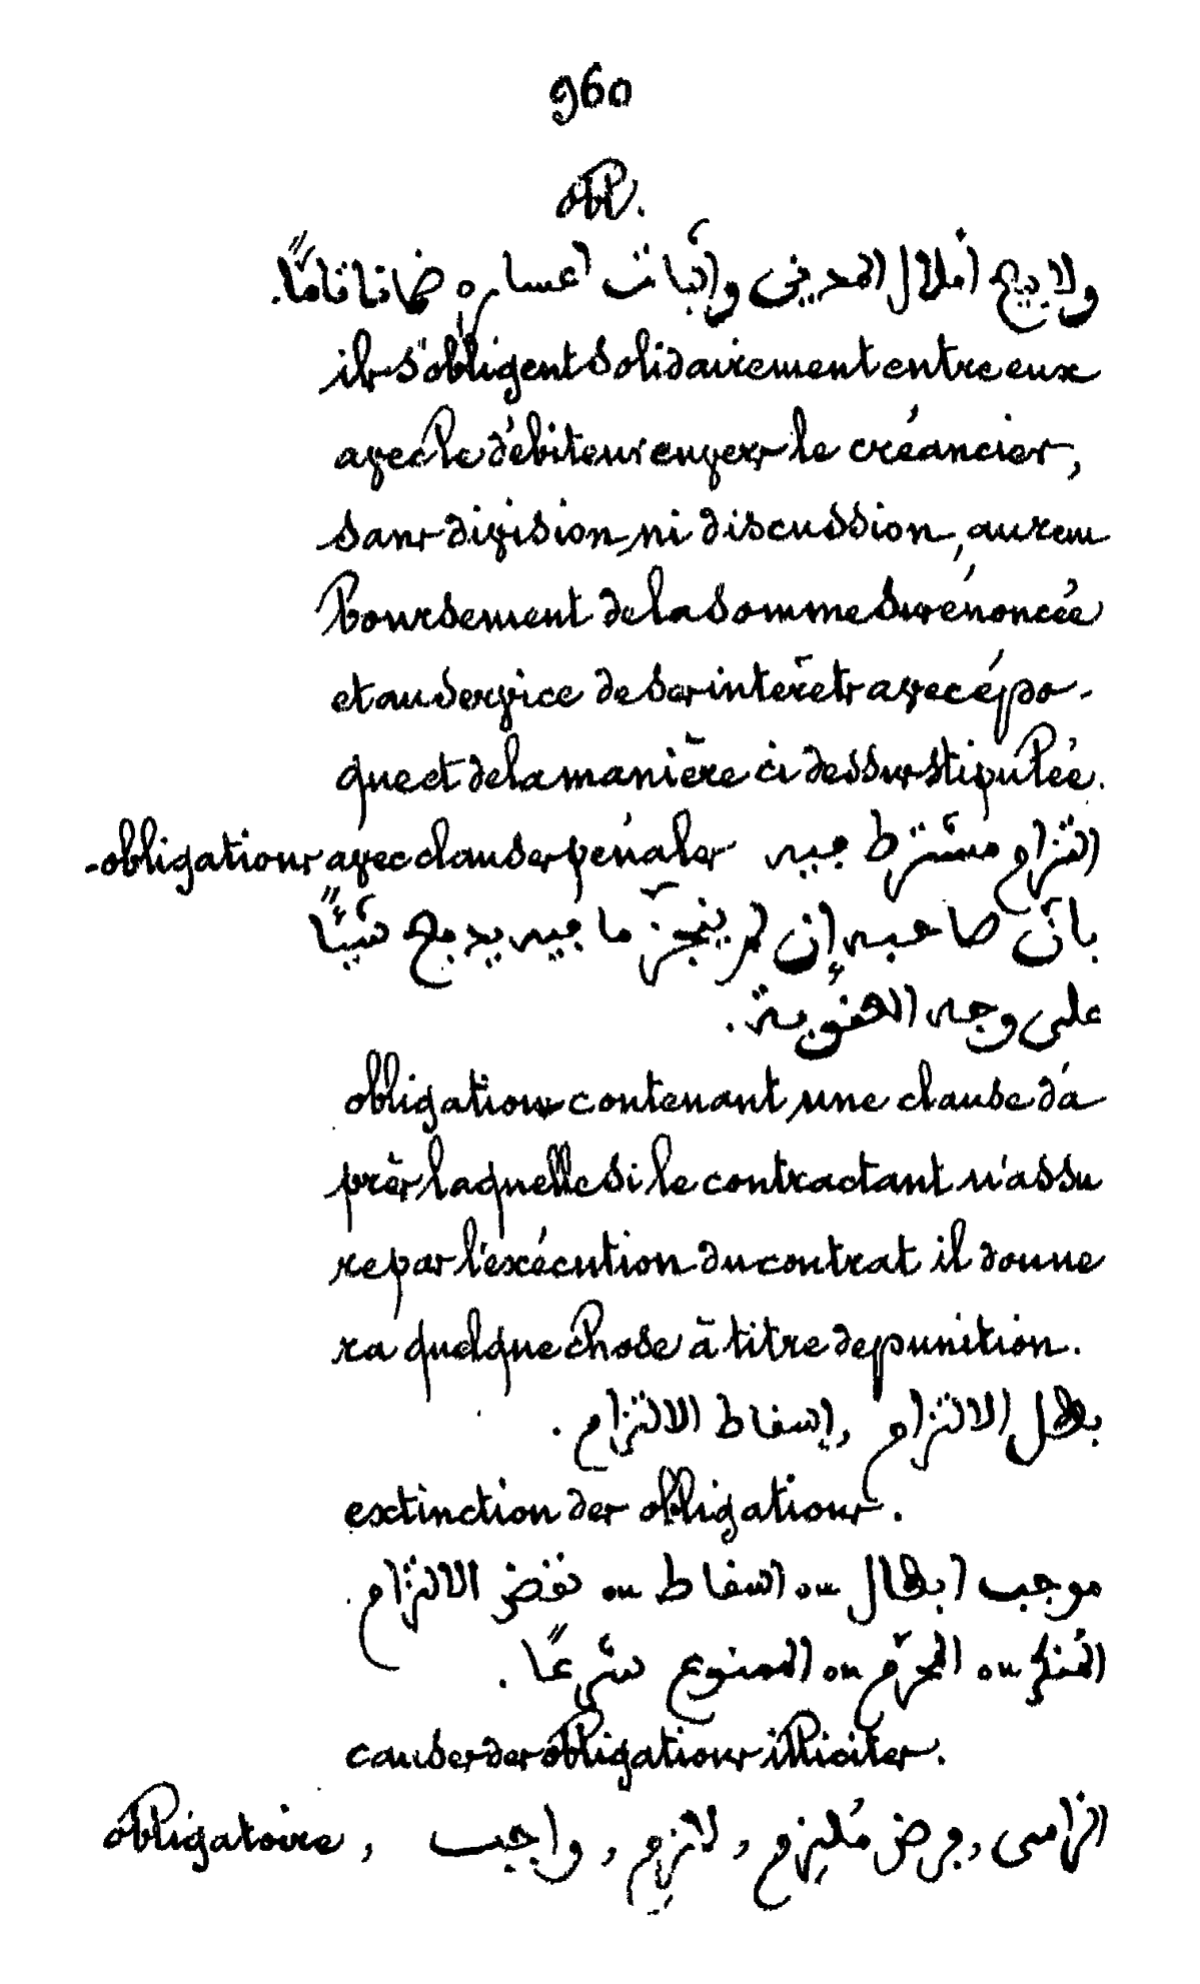 960
obl.
ولا بيع أملاك المدين وإثبات اعساره ضمانا تامًّا.
ils s'obligent solidairement entre eux
avec le débiteur envers le créancier,
sans division ni discussion, au rem
boursement de la somme sus énoncée
et au service de ses intérêts avec épo-
que et de la manière ci dessus stipulée.
-obligations avec clauses pénales التزام مشترط فيه
بأنّ صاحبه إن لم ينجّز ما فيه يدفع شيئًا
على وجه العقوبة.
obligations contenant une clause d'a
près laquelle si le contractant n'assu
re par l'exécution du contrat il donne
ra quelque chose à titre de punition.
بطل الالتزام, إسقاط الالتزام.
extinction des obligations.
موجب ابطال ou اسقاط ou نقض الالتزام
المُنكر ou المحرّم ou الممنوع شرعًا.
causes des obligations illicites.
obligatoire, الزامى, فرض مُلِزم, لازِم, واجب